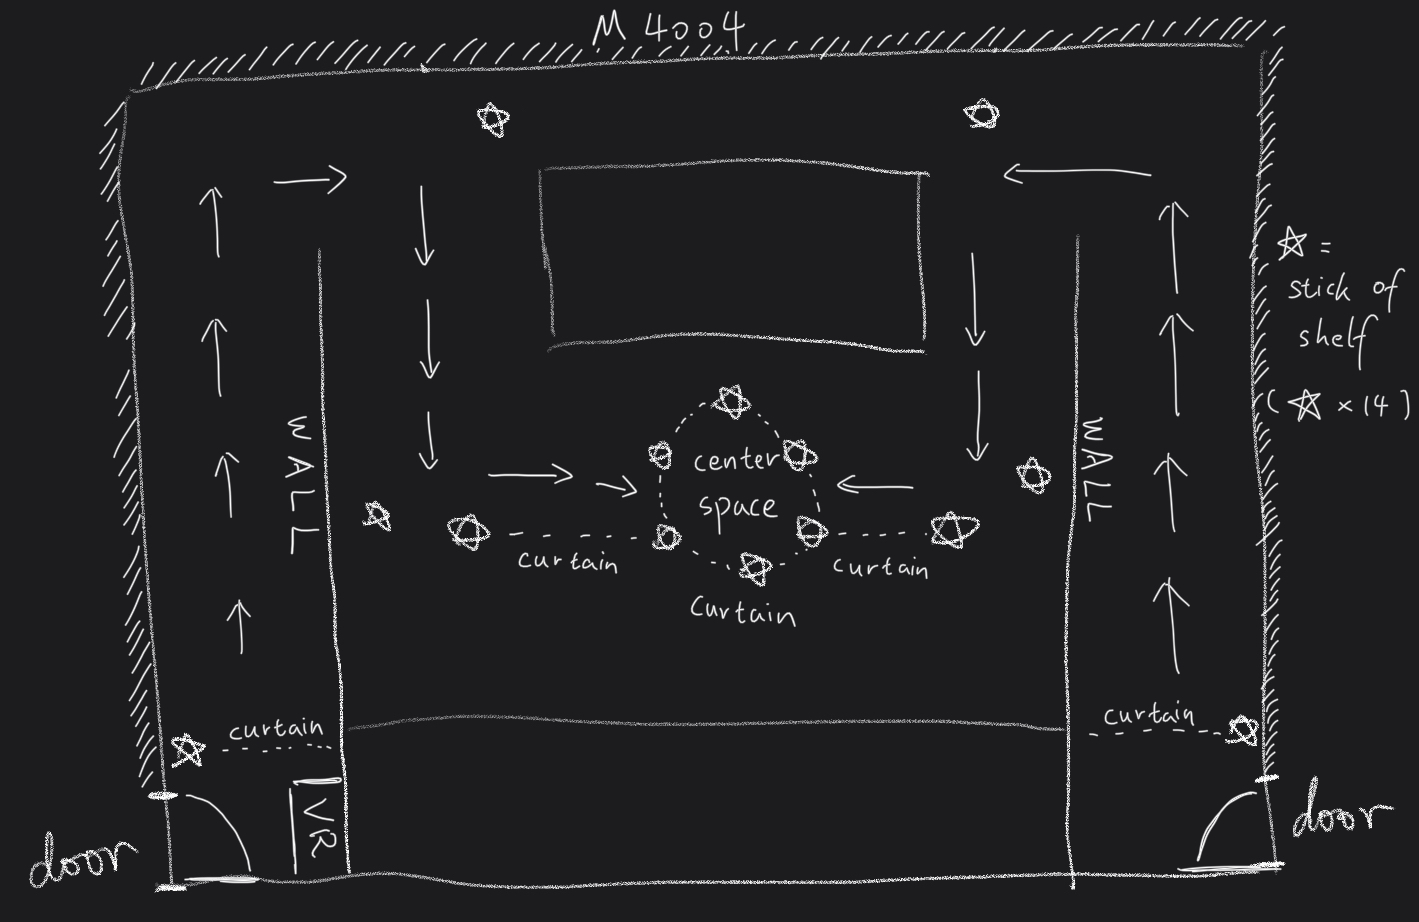 M 4004
☆ =
stick of
shelf
(☆ × 14)
WALL
WALL
center
space
curtain
curtain
curtain
curtain
curtain
VR
door
door